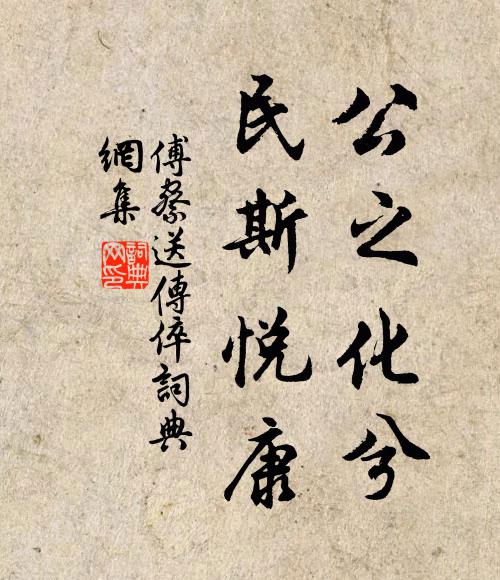 公之化兮
民斯悦康
傅察送傅倅詞典
網集
詞典
网印